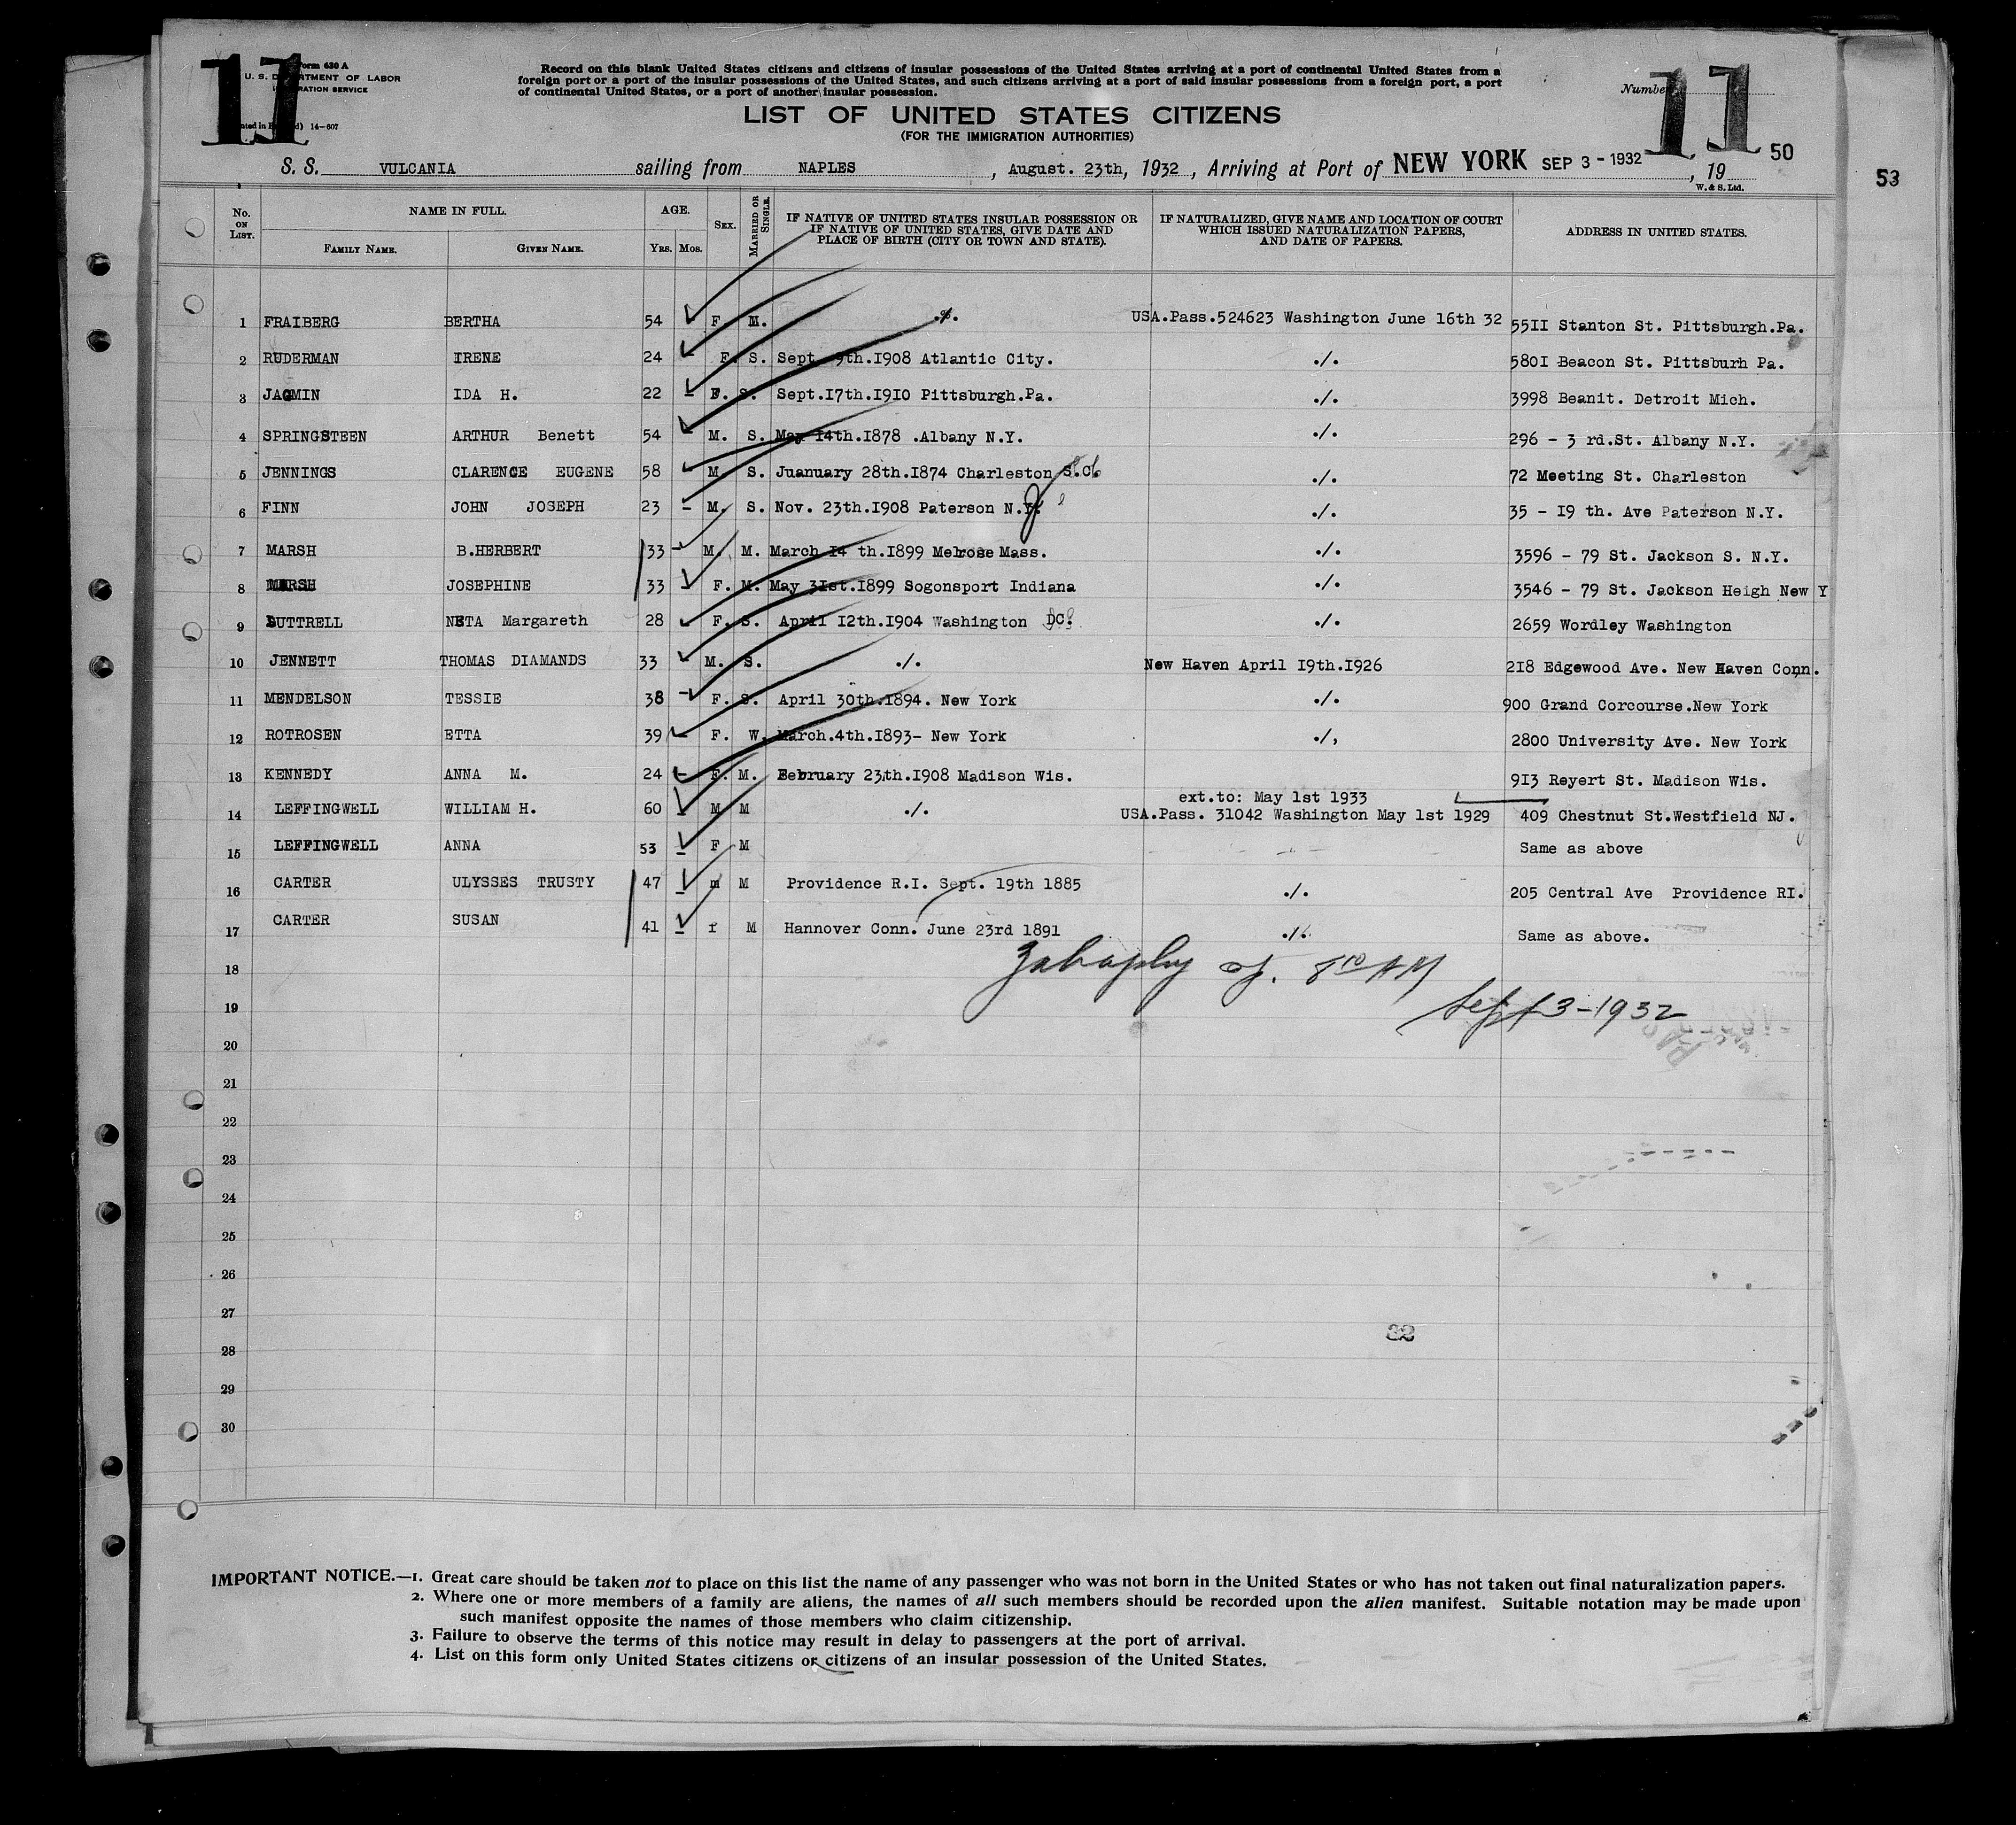 11
Form 630 A
U. S. DEPARTMENT OF LABOR
IMMIGRATION SERVICE
14—607
Record on this blank United States citizens and citizens of insular possessions of the United States arriving at a port of continental United States from a
foreign port or a port of the insular possessions of the United States, and such citizens arriving at a port of said insular possessions from a foreign port, a port
of continental United States, or a port of another insular possession.
Number
11
LIST OF UNITED STATES CITIZENS
(FOR THE IMMIGRATION AUTHORITIES)
50
53
S. S. VULCANIA sailing from NAPLES, August. 23th, 1932, Arriving at Port of NEW YORK SEP 3 - 1932, 19
W. & S. Ltd.
No. ON LIST.
NAME IN FULL.
FAMILY NAME.
GIVEN NAME.
AGE.
YRS. MOS.
SEX.
MARRIED OR SINGLE.
IF NATIVE OF UNITED STATES INSULAR POSSESSION OR
IF NATIVE OF UNITED STATES, GIVE DATE AND
PLACE OF BIRTH (CITY OR TOWN AND STATE).
IF NATURALIZED, GIVE NAME AND LOCATION OF COURT
WHICH ISSUED NATURALIZATION PAPERS,
AND DATE OF PAPERS.
ADDRESS IN UNITED STATES.
1 FRAIBERG BERTHA 54 F. M. ./. USA.Pass.524623 Washington June 16th 32 55II Stanton St. Pittsburgh.Pa.
2 RUDERMAN IRENE 24 F. S. Sept. 9th.I908 Atlantic City. ./. 580I Beacon St. Pittsburh Pa.
3 JAGMIN IDA H. 22 F. S. Sept.I7th.I9IO Pittsburgh.Pa. ./. 3998 Beanit. Detroit Mich.
4 SPRINGSTEEN ARTHUR Benett 54 M. S. May I4th.I878 .Albany N.Y. ./. 296 - 3 rd.St. Albany N.Y.
5 JENNINGS CLARENCE EUGENE 58 M. S. Juanuary 28th.I874 Charleston S.C. ./. 72 Meeting St. Charleston
6 FINN JOHN JOSEPH 23 M. S. Nov. 23th.I908 Paterson N.J. ./. 35 - I9 th. Ave Paterson N.Y.
7 MARSH B.HERBERT 33 M. M. March I4 th.I899 Melrose Mass. ./. 3596 - 79 St. Jackson S. N.Y.
8 MARSH JOSEPHINE 33 F. M. May 3Ist.I899 Sogonsport Indiana ./. 3546 - 79 St. Jackson Heigh New Y
9 BUTTRELL NETA Margareth 28 F. S. April I2th.I904 Washington DC. ./. 2659 Wordley Washington
10 JENNETT THOMAS DIAMANDS 33 M. S. ./. New Haven April I9th.I926 2I8 Edgewood Ave. New Haven Conn.
11 MENDELSON TESSIE 38 F. S. April 30th.I894. New York ./. 900 Grand Corcourse.New York
12 ROTROSEN ETTA 39 F. W. March.4th.I893- New York ./, 2800 University Ave. New York
13 KENNEDY ANNA M. 24 F. M. February 23th.I908 Madison Wis. 9I3 Reyert St. Madison Wis.
ext.to: May 1st 1933
14 LEFFINGWELL WILLIAM H. 60 M M ./. USA.Pass. 31042 Washington May 1st 1929 409 Chestnut St.Westfield NJ.
15 LEFFINGWELL ANNA 53 F M Same as above
16 CARTER ULYSSES TRUSTY 47 m M Providence R.I. Sept. 19th 1885 ./. 205 Central Ave Providence RI.
17 CARTER SUSAN 41 f M Hannover Conn. June 23rd 1891 ./. Same as above.
8 10 AM
Sept 3-1932
18
19
20
21
22
23
24
25
26
27
32
28
29
30
IMPORTANT NOTICE.—1. Great care should be taken not to place on this list the name of any passenger who was not born in the United States or who has not taken out final naturalization papers.
2. Where one or more members of a family are aliens, the names of all such members should be recorded upon the alien manifest. Suitable notation may be made upon
such manifest opposite the names of those members who claim citizenship.
3. Failure to observe the terms of this notice may result in delay to passengers at the port of arrival.
4. List on this form only United States citizens or citizens of an insular possession of the United States.